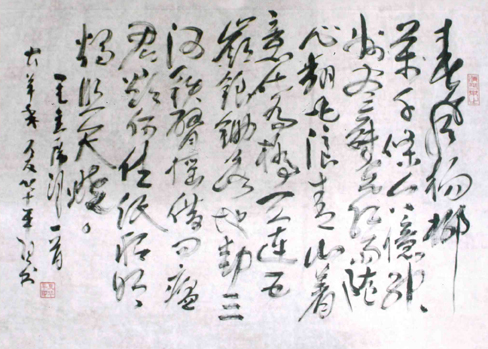 春风杨柳
万千條六億神
州尽舜尧红雨随
心翻作浪青山着
意化为橋天连五
嶺銀鋤落地動三
河鐵臂摇借问瘟
君欲何往纸船明
烛照天烧
毛主席诗一首